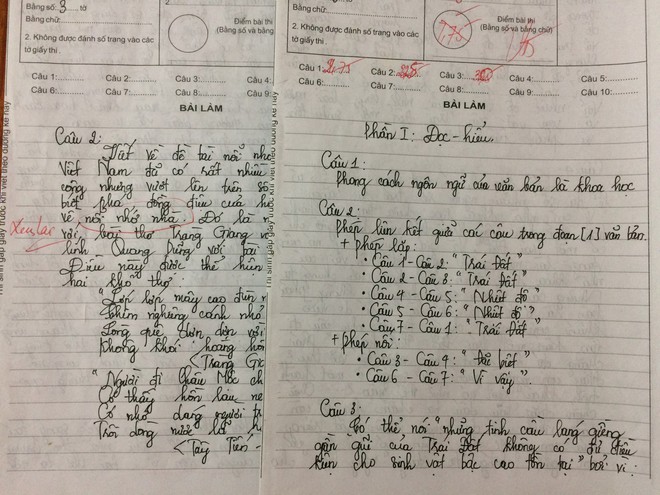 Bằng số: 3 tờ
Bằng chữ:
2. Không được đánh số trang vào các
tờ giấy thi.
Điểm bài thi
(Bằng số và bằng
Câu 1: Câu 2: Câu 3: Câu 4:
Câu 6: Câu 7: Câu 8: Câu 9:
BÀI LÀM
Câu 2:
Viết về đề tài nỗi nhớ
Việt Nam đã có rất nhiều
cộng nhưng vượt lên trên
biệt pha đồng điệu của
về nỗi nhớ nhà. Đó là
Xem lại
với bài thơ Tràng Giang
linh Quang Dũng với bài
Điều này được thể hiện
hai khổ thơ:
"Lớp lớp mây cao đùn
Chim nghiêng cánh nhỏ
Lòng quê dợn dợn vời
Không khói hoàng hôn
<Tràng
"Người đi Châu Mộc
Có thấy hồn lau
Có nhớ dáng người
Trôi dòng nước lũ
<Tây Tiến
Bằng chữ:
2. Không được đánh số trang vào các
tờ giấy thi.
Điểm bài thi
(Bằng số và bằng chữ)
7,75
Câu 1: 2,75 Câu 2: Câu 3: Câu 4: Câu 5:
Câu 6: Câu 7: Câu 8: Câu 9: Câu 10:
BÀI LÀM
Phần I: Đọc - hiểu.
Câu 1:
Phong cách ngôn ngữ của văn bản là khoa học
Câu 2:
Phép liên kết giữa các câu trong đoạn [1] văn bản.
+ Phép lặp:
• Câu 1 - Câu 2: "Trái Đất"
• Câu 2 - Câu 3: "Trái Đất"
• Câu 4 - Câu 5: "Nhiệt độ"
• Câu 5 - Câu 6: "Nhiệt độ"
• Câu 7 - Câu 1: "Trái Đất"
+ Phép nối:
• Câu 3 - Câu 4: "Đã biết"
• Câu 6 - Câu 7: "Vì vậy".
Câu 3:
Có thể nói "những tinh cầu láng giềng
gần gũi của Trái Đất không có đủ điều
kiện cho sinh vật bậc cao tồn tại" bởi vì: